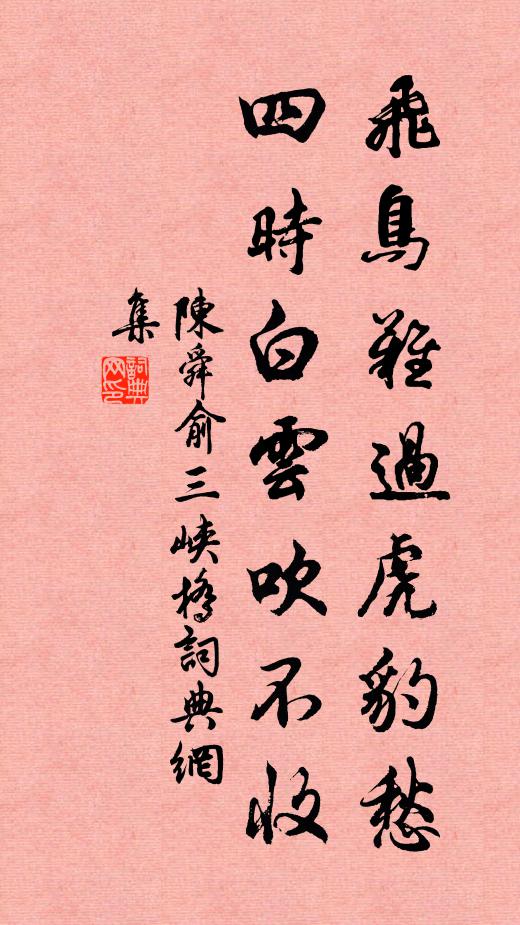 飛鳥難過虎豹愁
四時白雲吹不收
陳舜俞三峽橋詞典網
集
詞典網印